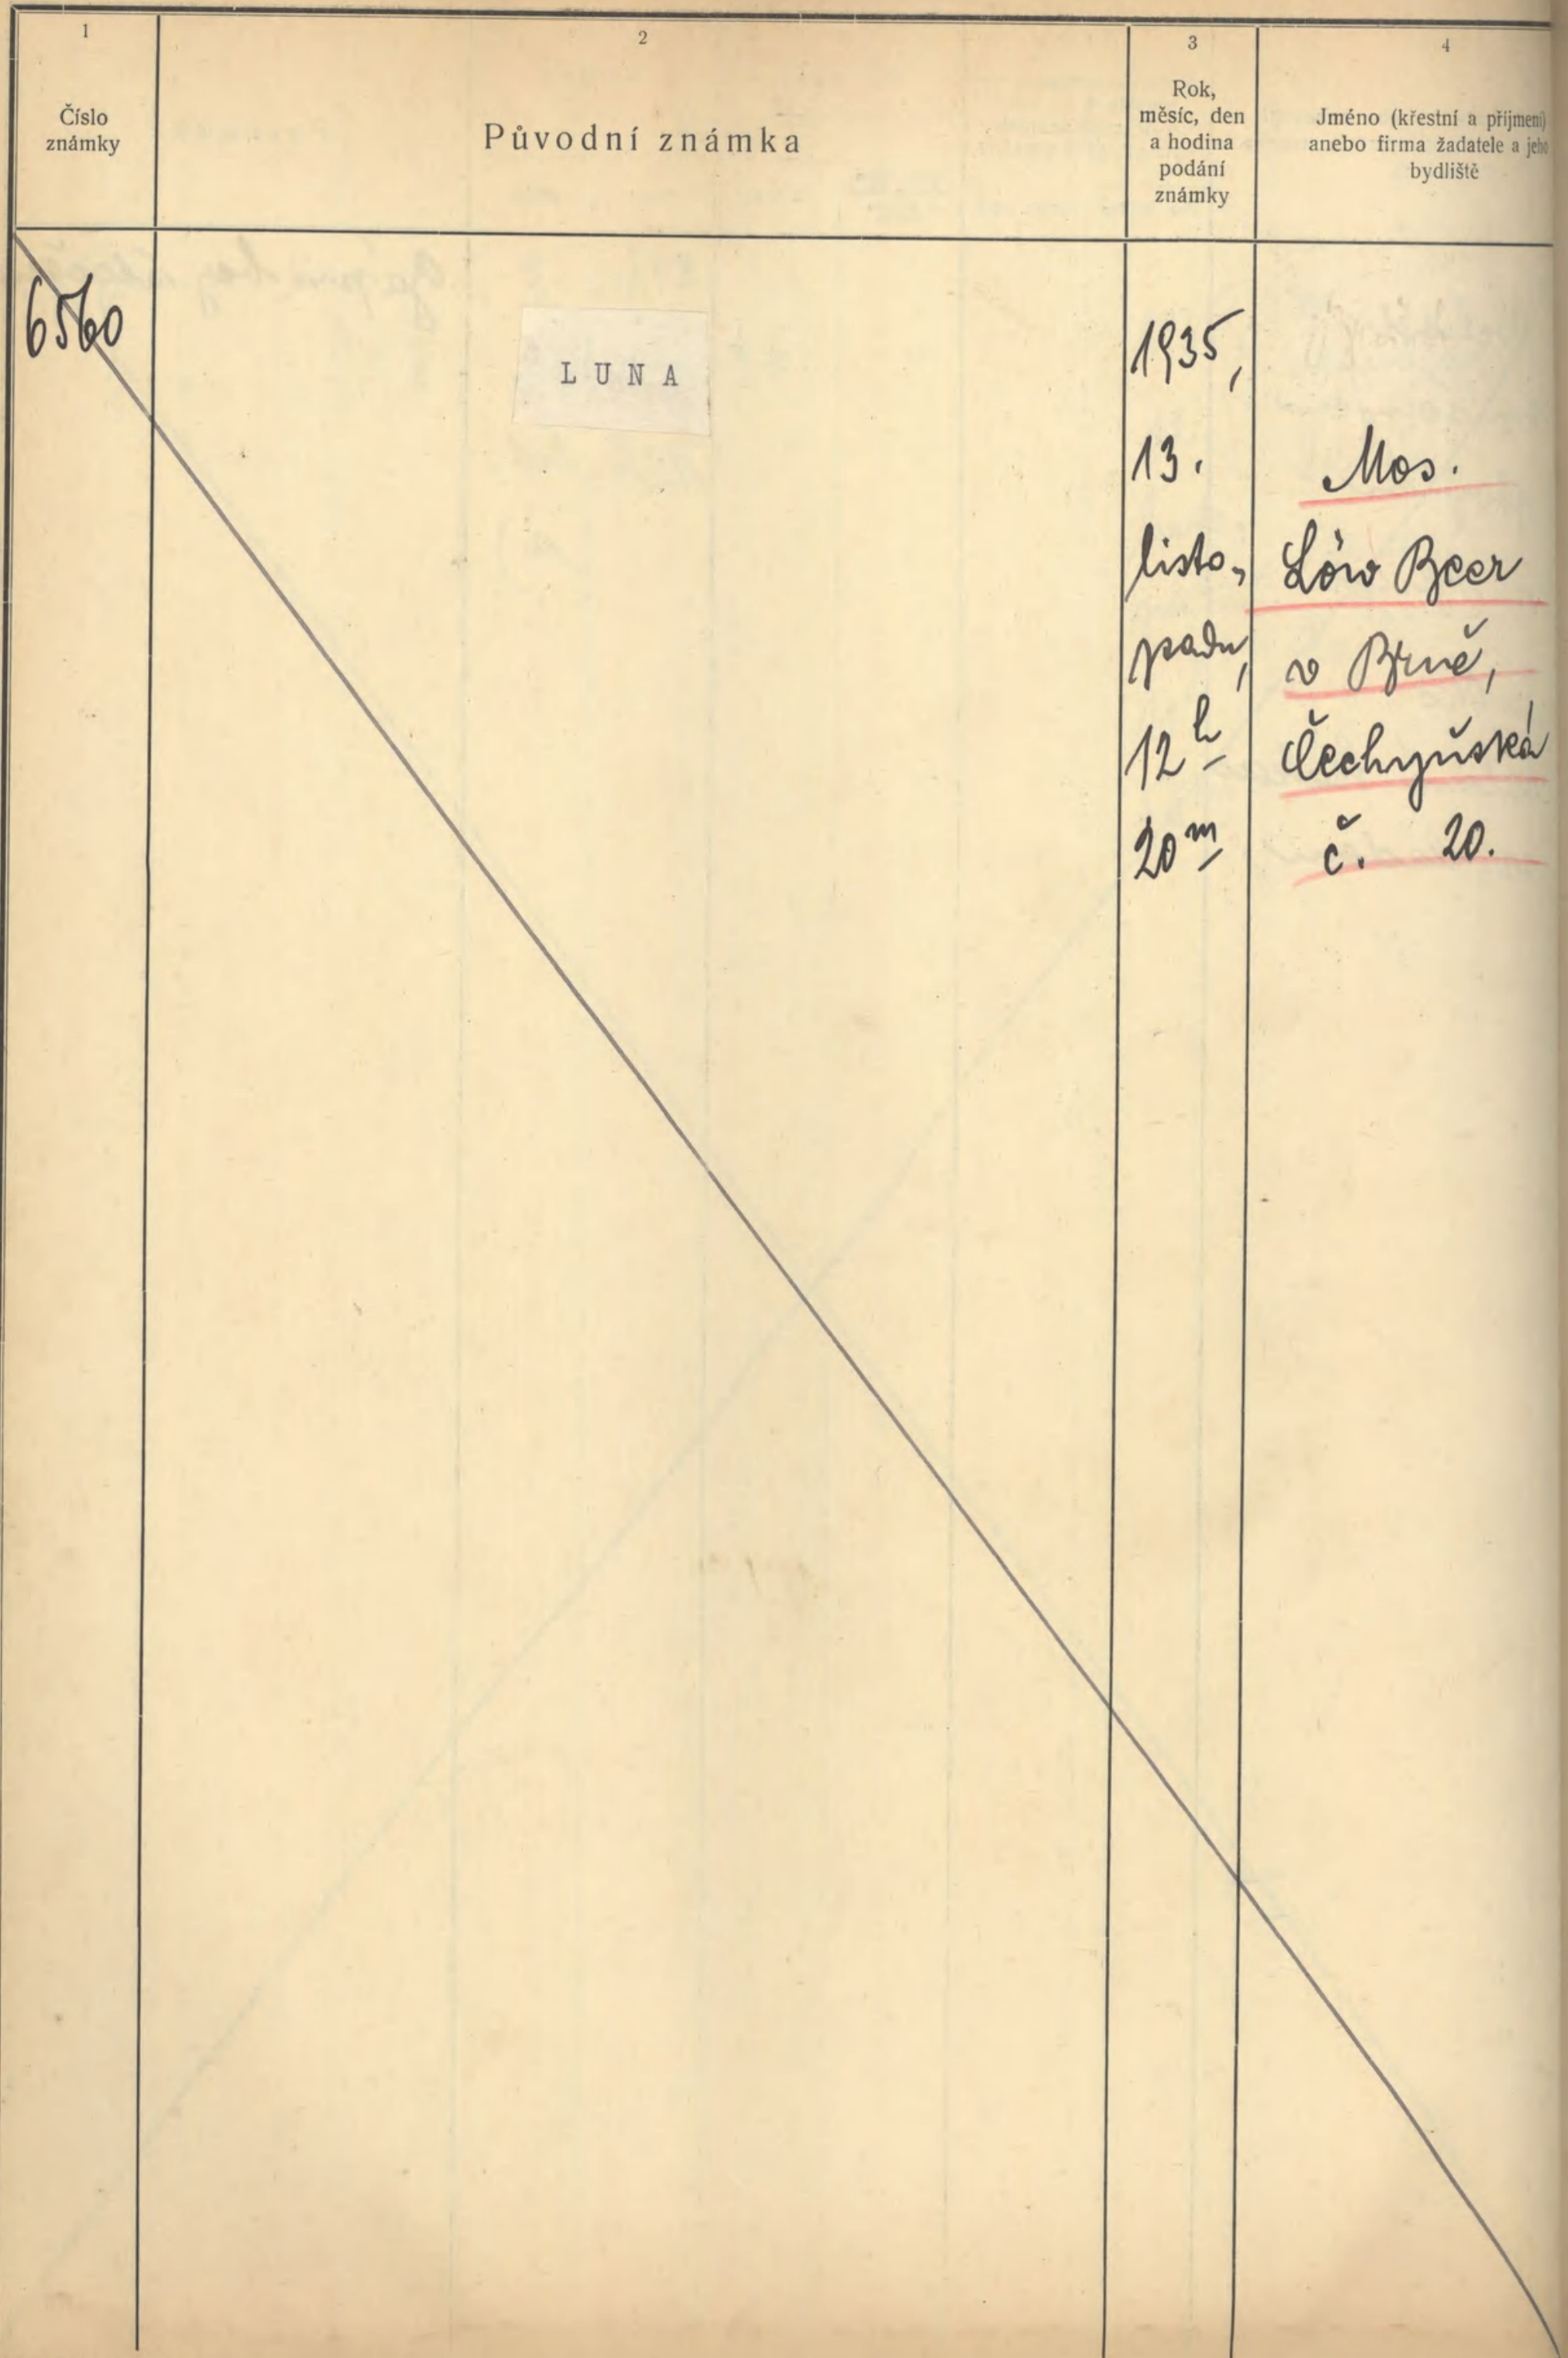 1
Číslo
známky
2
Původní známka
3
Rok,
měsíc, den
a hodina
podání
známky
4
Jméno (křestní a příjmení)
anebo firma žadatele a jeho
bydliště
6560
LUNA
1935,
13.
listo-
padu,
12h
20m
Mos.
Löw Beer
v Brně,
Čechyňská
č. 20.